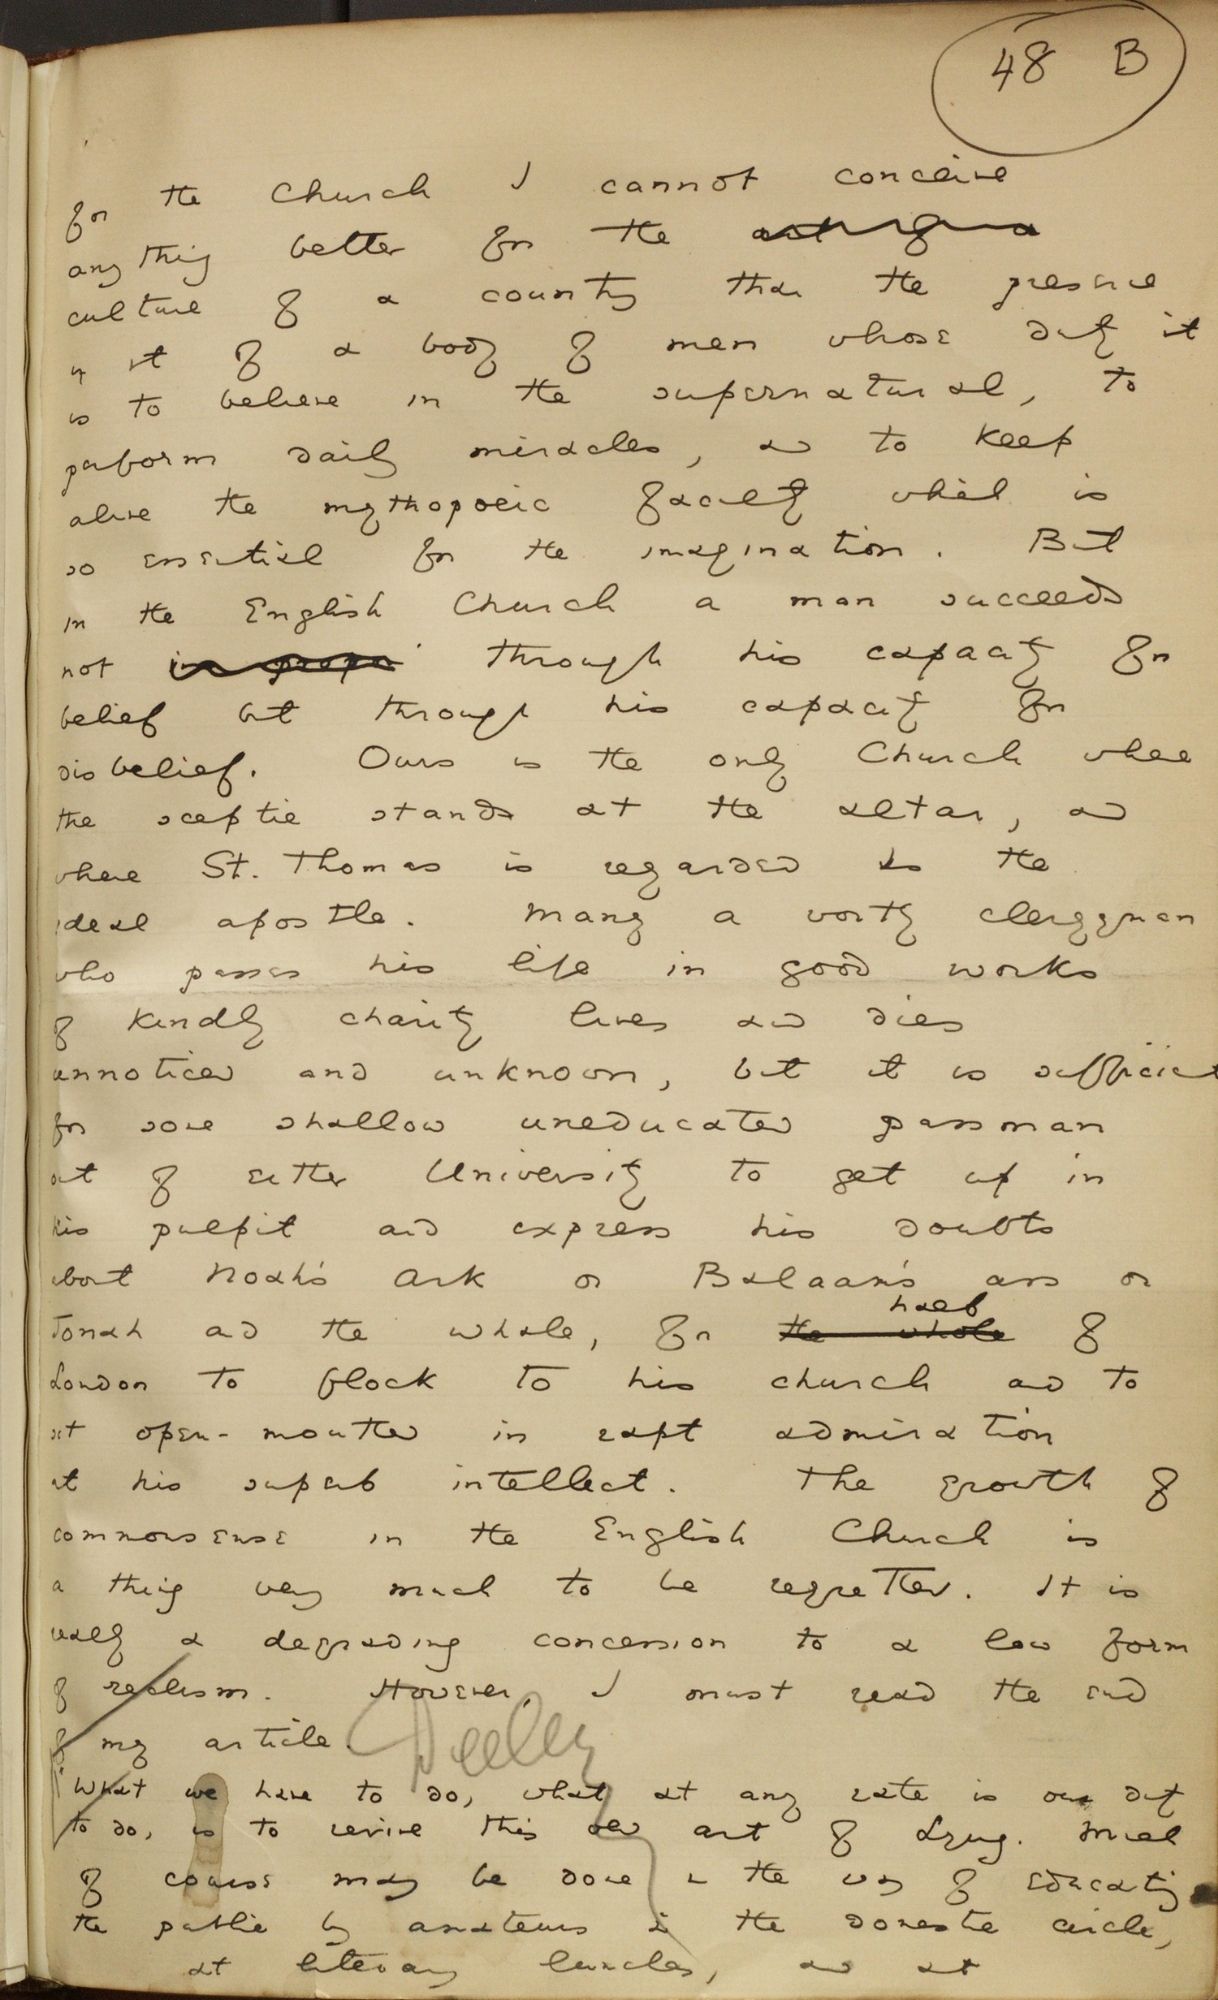 48 B
for the Church I cannot conceive
anything better for the
culture of a country than the presence
in it of a body of men whose duty it
is to believe in the supernatural, to
perform daily miracles, and to keep
alive the mythopoeic faculty which is
so essential for the imagination. But
in the English Church a man succeeds
not in prop through his capacity for
belief but through his capacity for
disbelief. Ours is the only Church where
the sceptic stands at the altar, and
where St. Thomas is regarded as the
ideal apostle. Many a worthy clergyman
who passes his life in good works
of kindly charity lives and dies
unnoticed and unknown, but it is sufficient
for some shallow uneducated passman
out of either University to get up in
his pulpit and express his doubts
about Noah's Ark or Balaam's ass or
half
Jonah and the whale, for the whole of
London to flock to his church and to
sit open-mouthed in rapt admiration
at his superb intellect. The growth of
commonsense in the English Church is
a thing very much to be regretted. It is
really a degrading concession to a low form
of realism. However, I must read the end
of my article.
"What we have to do, what at any rate is our duty
to do, is to revive this old art of Lying. Much
of course may be done in the way of educating
the public by amateurs in the domestic circle,
at literary lunches, and at